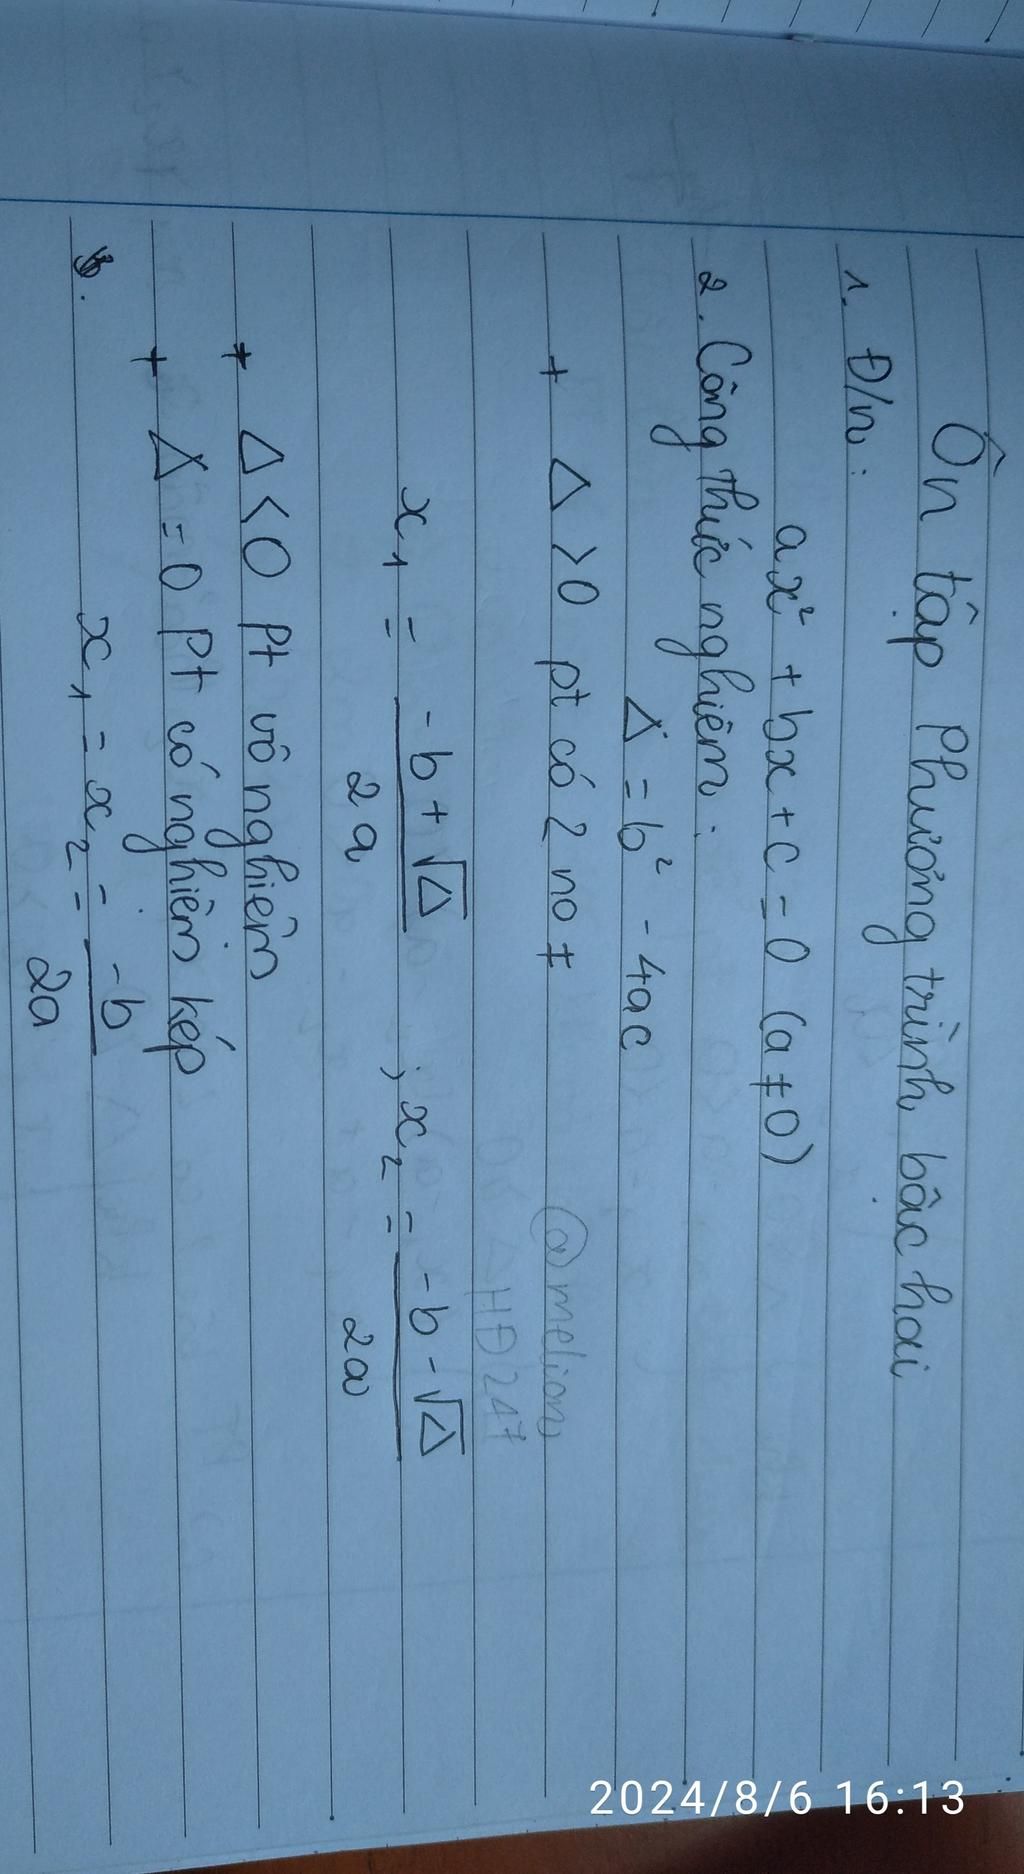 Ôn tập phương trình bậc hai
1. Đ/n:
ax² + bx + c = 0 (a ≠ 0)
2. Công thức nghiệm:
Δ = b² - 4ac
+ Δ > 0 pt có 2 no ≠
@melion
HĐ247
x₁ = (-b + √Δ)/2a ; x₂ = (-b - √Δ)/2a
+ Δ < 0 pt vô nghiệm
+ Δ = 0 pt có nghiệm kép
x₁ = x₂ = -b/2a
2024/8/6 16:13